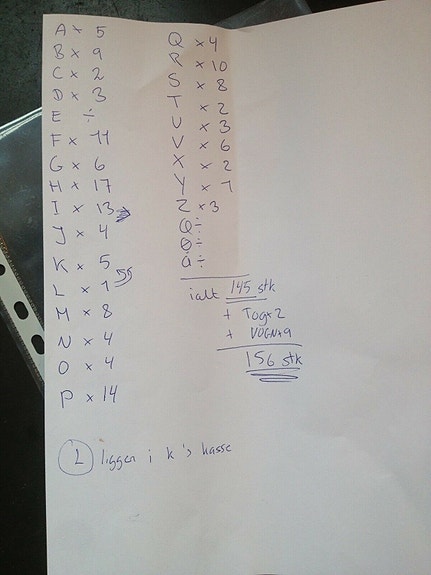 A x 5
B x 9
C x 2
D x 3
E ÷
F x 11
G x 6
H x 17
I x 13
J x 4
K x 5
L x 1
M x 8
N x 4
O x 4
P x 14
Q x 4
R x 10
S x 8
T x 2
U x 3
V x 6
X x 2
Y x 1
Z x 3
Ø ÷
å ÷
ialt 145 stk
+ Tog x 2
+ VOGN x 9
156 stk
L ligger i K's kasse